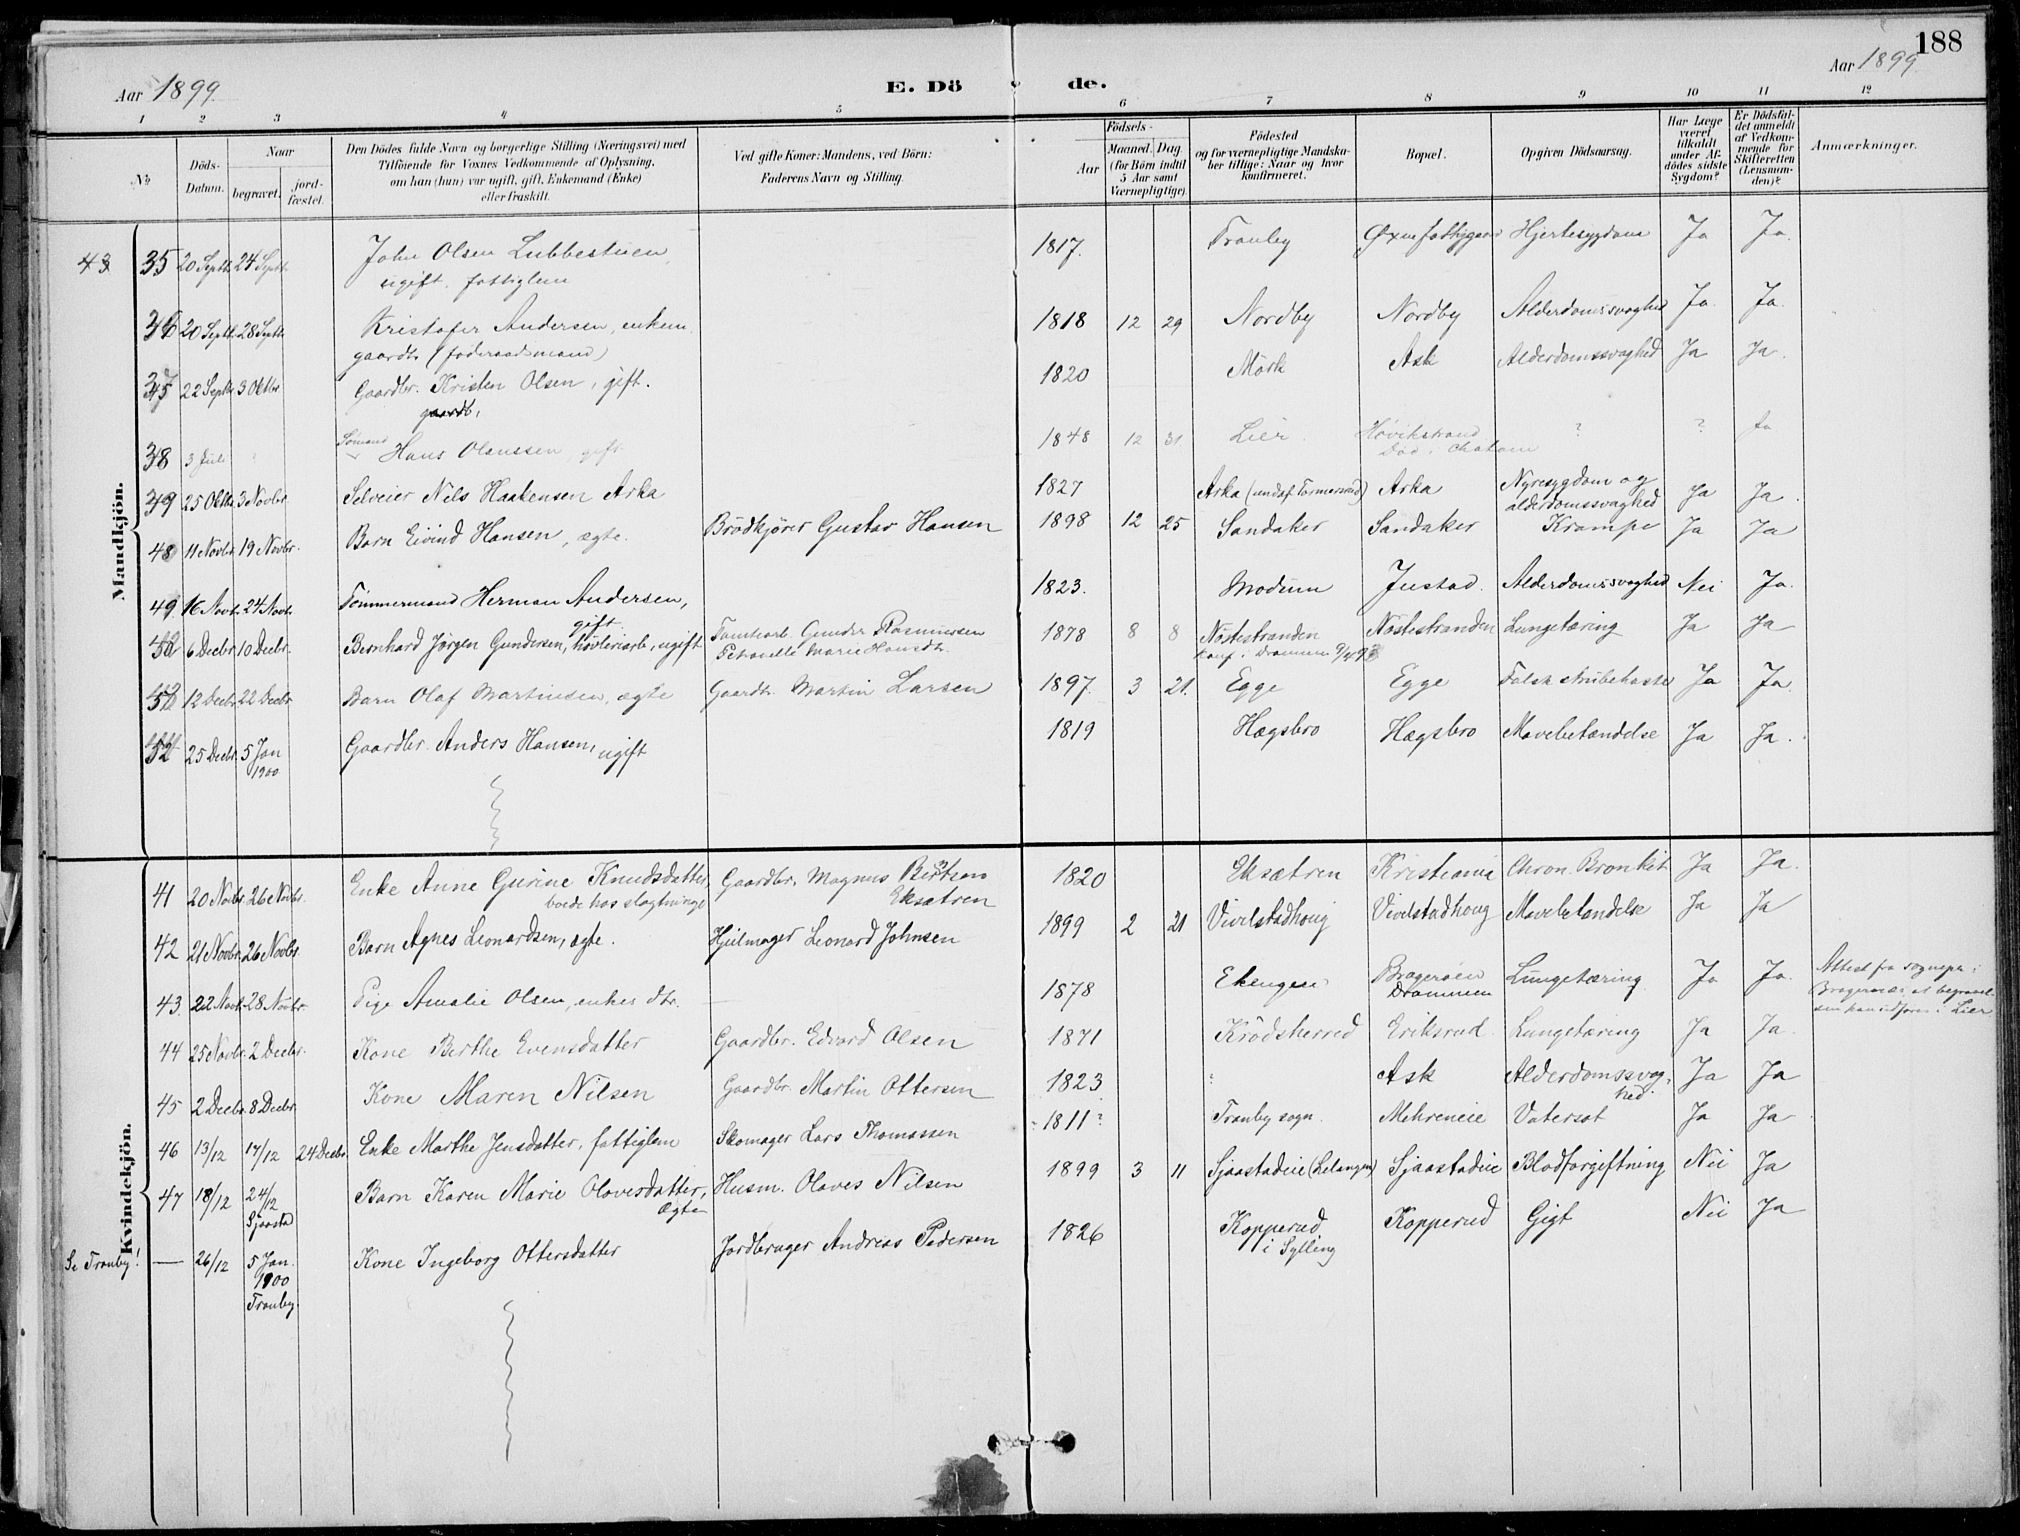 188
Aar 1899.
E. Dö de.
Aar 1899
1 2 3 4 5 6 7 8 9 10 11 12
No
Döds-Datum.
Naar
begravet.
jord-fæstet.
Den Dödes fulde Navn og borgerlige Stilling (Næringsvei) med
Tilföiende for Voxnes Vedkommende af Oplysning,
om han (hun) var ugift, gift, Enkemand (Enke)
eller fraskilt.
Ved gifte Koner: Mandens, ved Börn:
Faderens Navn og Stilling.
Födsels-
Aar
Maaned. Dag.
(for Börn indtil
5 Aar samt
Værnepligtige).
Födested
og for værnepligtige Mandska-
ber tillige: Naar og hvor
konfirmeret.
Bopæl.
Opgiven Dödsaarsag.
Har Læge
været
tilkaldt
under Af-
dödes sidste
Sygdom?
Er Dödsfal-
det anmeldt
af Vedkom-
mende for
Skifteretten
(Lensman-
den)?
Anmærkninger.
Mandkjön.
43 35 20 Septb. 24 Septb. John Olsen Lubbestuen, 1817. Tranby Hjertesygdom Ja Ja.
ugift. fattiglem
36 20 Septb. 28 Septb. Kristofer Andersen, enkem. 1818 12 29 Nordby Nordby Alderdomssvaghed Ja. Ja.
gaardbr. (föderaadsmand)
22 Septb. 3 Oktbr. Gaardbr. Kristen Olsen, gift. 1820 Mörk Ask Alderdomssvaghed Ja Ja.
gaardb.
38 3 Juli Sömand Hans Olaussen, gift 1848 12 31 Lier. Høvikstrand ? ? Ja
Död i Chatam
39 25 Oktbr. 3 Novbr. Selveier Nils Haakensen Arka 1827 Arka Arka Nyresygdom og Ja Ja.
alderdomssvaghed
11 Novbr. 19 Novbr. Barn Eivind Hansen, ægte. Brödkjörer Gustav Hansen 1898 12 25 Sandaker Sandaker Krampe Ja Ja
16 Novbr. 24 Novbr. Tömmermand Herman Andersen, 1823. Modum Justad. Alderdomssvaghed Nei Ja.
gift.
6 Decbr. 10 Decbr. Bernhard Jörgen Gundersen, hövleriarb., ugift Gunder Rasmussen 1878 8 8 Nöstestranden Nöstestranden Lungetæring Ja Ja
Marie Hansdtr. konf. i Drammen
12 Decbr. 22 Decbr. Barn Olaf Martinsen, ægte Gaardbr. Martin Larsen 1897. 3 21. Egge Egge Falsk strubehoste Ja Ja.
25 Decbr. 5 Jan 1900 Gaardbr. Anders Hansen, ugift 1819 Hægsbro Hægsbro Mavebetændelse Ja Ja.
Kvindekjön.
41 20 Novbr. 26 Novbr. Enke Anne Gurine Knudsdatter, Gaardbr. Magnus 1820 Eksætren Kristiania Chron. Bronkit Ja Ja.
boede hos slægtninge Eksætren
42 21 Novbr. 26 Novbr. Barn Agnes Leonardsen, ægte. Hjulmager Leonard Johnsen 1899 2 21 Vivelstadhoug Vivelstadhoug Mavebetændelse Ja Ja
43. 22 Novb. 28 Novbr. Pige Amalie Olsen, enkes dtr. — 1878 Ekengen Bragerøen Lungetæring Ja Ja. Attest fra sognepr. i
Drammen Bragernæs at begravel-
sen kan udföres i Lier
44 25 Novbr. 2 Decbr. Kone Berthe Evensdatter Gaardbr. Edvard Olsen 1871 Krödsherred Eriksrud. Lungetæring Ja Ja.
45 2 Decbr. 8 Decbr. Kone Maren Nilsen Gaardbr. Martin Ottersen 1823 Ask Alderdomssvag- Ja Ja
hed.
46 13/12 17/12 24 Decbr. Enke Marthe Jensdatter, fattiglem Skomager Lars Thomassen 1811? Tranby sogn. Mehreneie Vatersot Ja Ja
47 18/12 24/12 Sjaastad Barn Karen Marie Olavesdatter, Husm. Olaves Nilsen 1899 3 11 Sjaastadeie Sjaastadeie Blodforgiftning Nei Ja
ægte
Se Tranby! — 26/12 5 Jan. 1900 Tranby. Kone Ingeborg Ottersdatter Jordbruger Andreas Pedersen 1826 Kopperud Kopperud Gigt Nei Ja
i Sylling